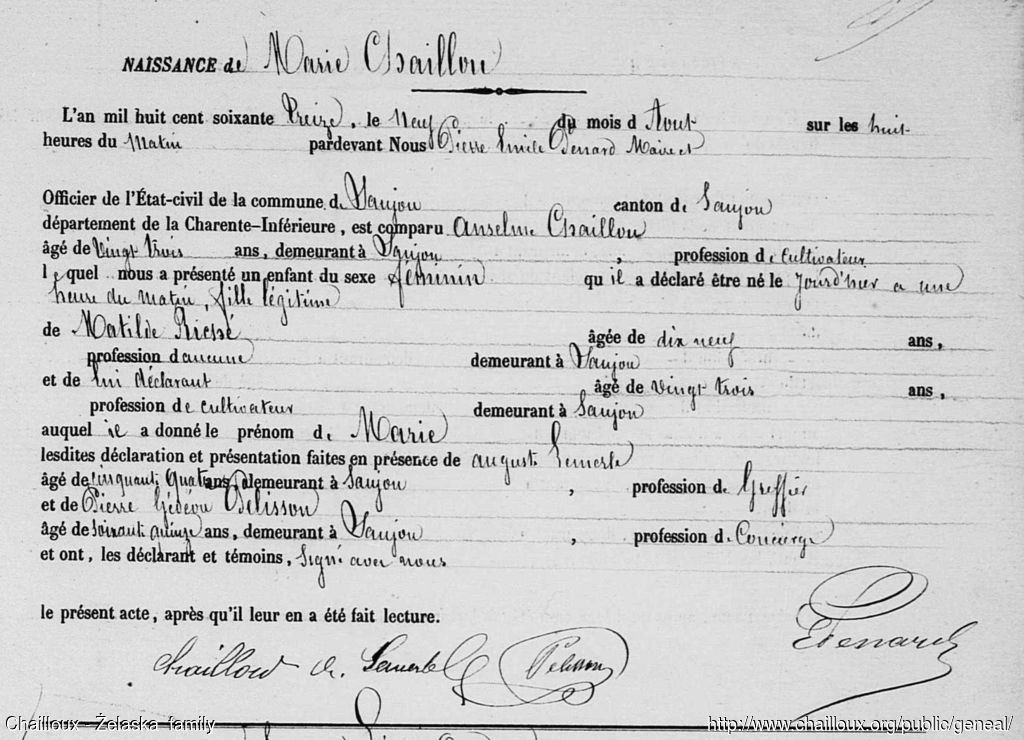 NAISSANCE de Marie Chaillou
L'an mil huit cent soixante Treize, le Neuf du mois d Aout sur les huit
heures du Matin pardevant Nous Pierre Emile Penard Maire et
Officier de l'État-civil de la commune de Saujon canton de Saujon
département de la Charente-Inférieure, est comparu Anselme Chaillou
âgé de Vingt Trois ans, demeurant à Saujon, profession de Cultivateur
lequel nous a présenté un enfant du sexe féminin qu'il a déclaré être né le Jourd'hier a une
heure du matin, fille légitime
de Matilde âgée de dix neuf ans,
profession d'aucune demeurant à Saujon
et de lui déclarant âgé de vingt trois ans,
profession de cultivateur demeurant à Saujon
auquel il a donné le prénom de Marie
lesdites déclaration et présentation faites en présence de auguste Lemerle
âgé de cinquante Quatre ans, demeurant à Saujon, profession de Greffier
et de Pierre Gédéon Pelisson
âgé de soixante ans, demeurant à Saujon, profession de Concierge
et ont, les déclarant et témoins, Signé avec nous
le présent acte, après qu'il leur en a été fait lecture.
chaillou A. Lemerle Pelisson EPenard
Chailloux - Żelaska family http://www.chailloux.org/public/geneal/